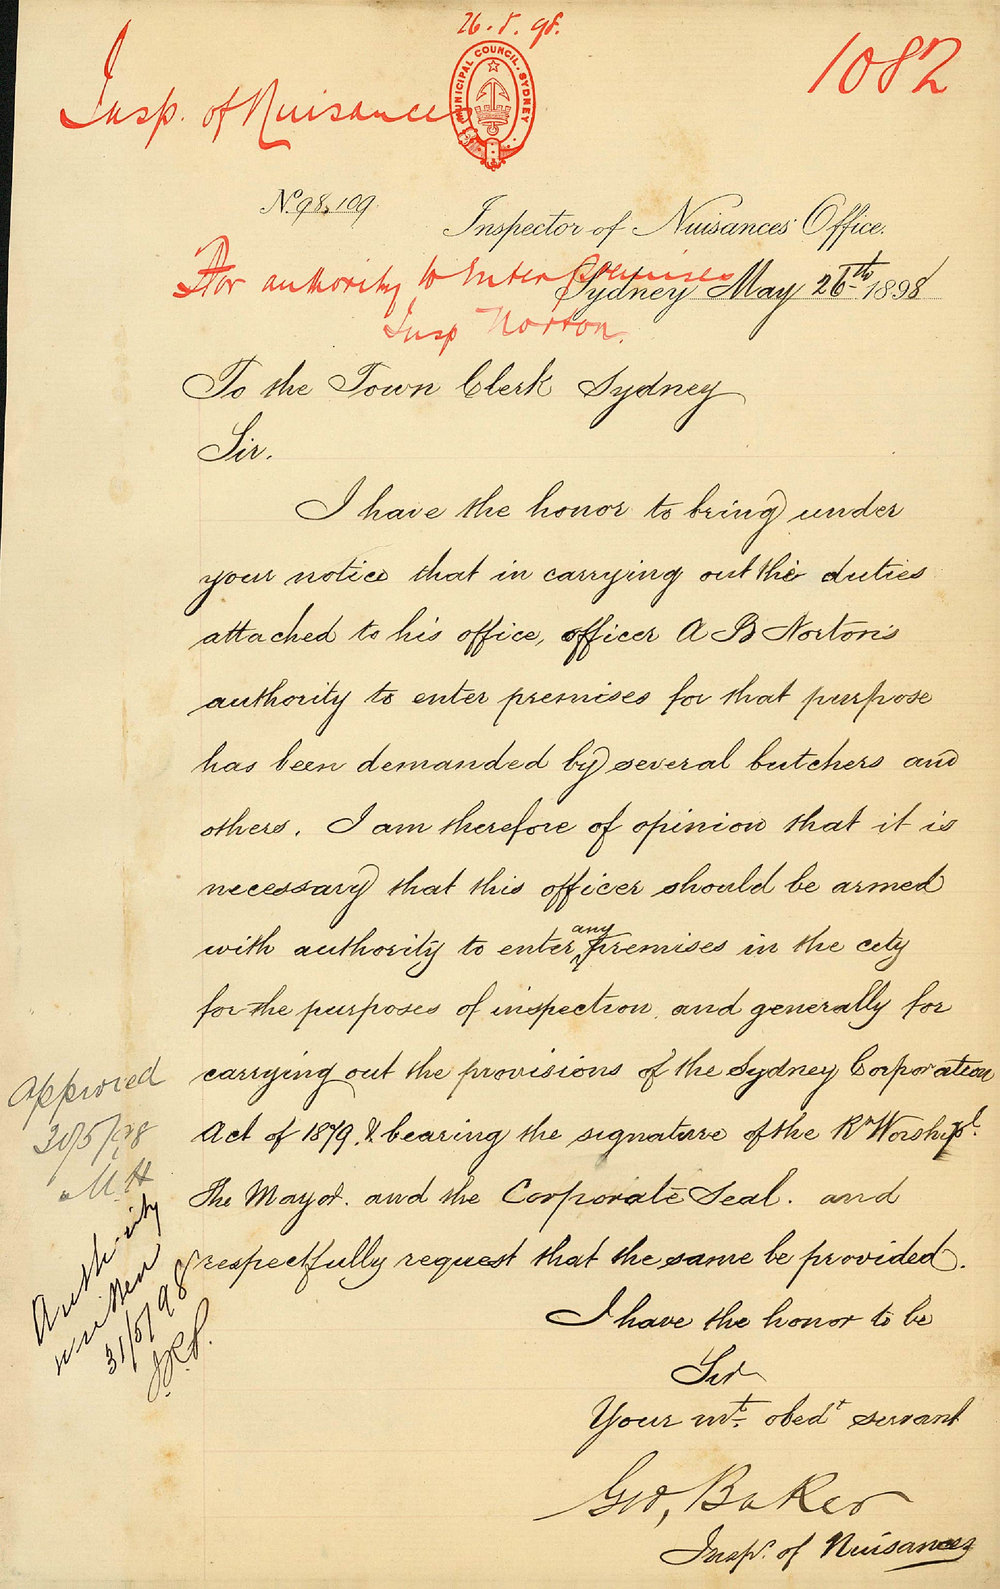 26.5.98.
1082
Insp. of Nuisances
MUNICIPAL COUNCIL. SYDNEY
No. 98,109
Inspector of Nuisances' Office.
For authority to Enter Premises
Sydney May 26th 1898
Insp Norton.
To the Town Clerk Sydney
Sir.
I have the honor to bring under
your notice that in carrying out the duties
attached to his office, officer A B Norton's
authority to enter premises for that purpose
has been demanded by several butchers and
others. I am therefore of opinion that it is
necessary that this officer should be armed
with authority to enter any premises in the city
for the purposes of inspection and generally for
carrying out the provisions of the Sydney Corporation
Act of 1879. & bearing the signature of the Rt Worshipl.
The Mayor. and the Corporate Seal. and
respectfully request that the same be provided.
I have the honor to be
Sir
Your mt. obedt servant
Geo, Baker
Inspr. of Nuisances
Approved
30/5/98
M.H
Authority
written
31/5/98